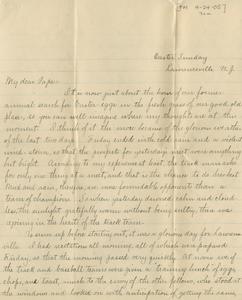 Easter Sunday
Lawrenceville N.J.
My dear Papa:
It is now just about the hour of our former
annual search for Easter eggs in the fresh grass of our good old
place, so you can well imagine where my thoughts are at this
moment. I think of it the more because of the glorious weather
of the last two days. Friday ended with cold rain and a
wind storm, so that the prospects for yesterday were anything
but bright. According to my experience at least the track man asks
for only one thing at a meet, and that is the chance to do his best.
Mud and rain, therefore, are more formidable opponents than a
team of champions. So when yesterday dawned calm and cloud
less, the sunlight gratefully warm without being sultry, this was
spring in the heart of the track team.
To sum up before starting out, it was a glorious day for Lawrence-
ville. I had recitations all morning, all of which were prepared
Friday, so that the morning passed very quickly. At noon we of
the track and baseball teams were given a training lunch of eggs
chops, and toast, much to the envy of the other fellows, who stood at
the windows and looked on with anticipation of getting the same